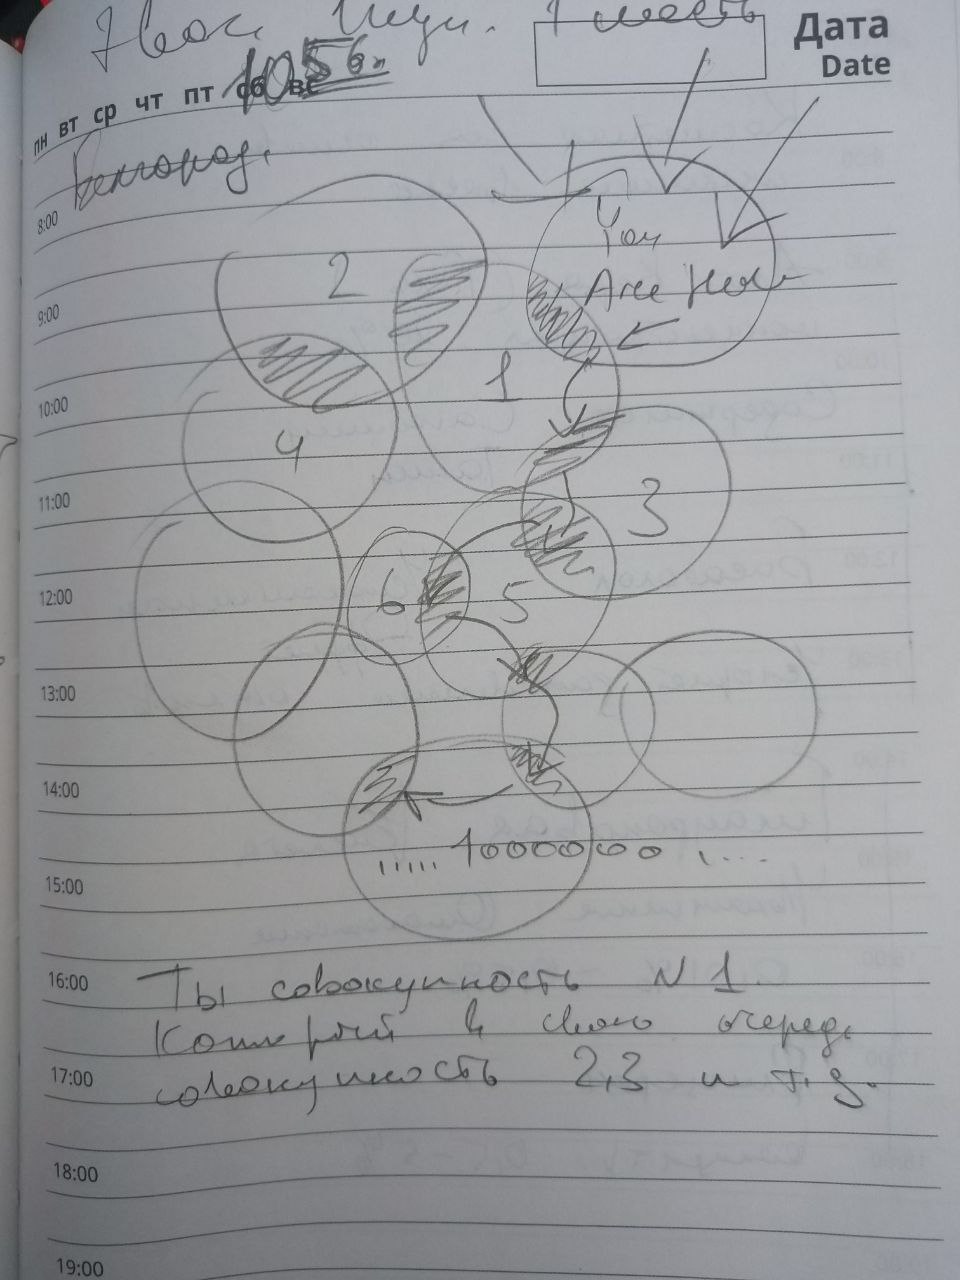 Дата
Date
пн вт ср чт пт сб вс
1056г.
Белгород.
8:00
You
Are Here
2
9:00
1
10:00
4
3
11:00
12:00
6
5
13:00
14:00
..... 1000000 . ...
15:00
16:00
Ты совокупность N 1.
Который в свою очередь
17:00
совокупность 2,3 и т.д.
18:00
19:00